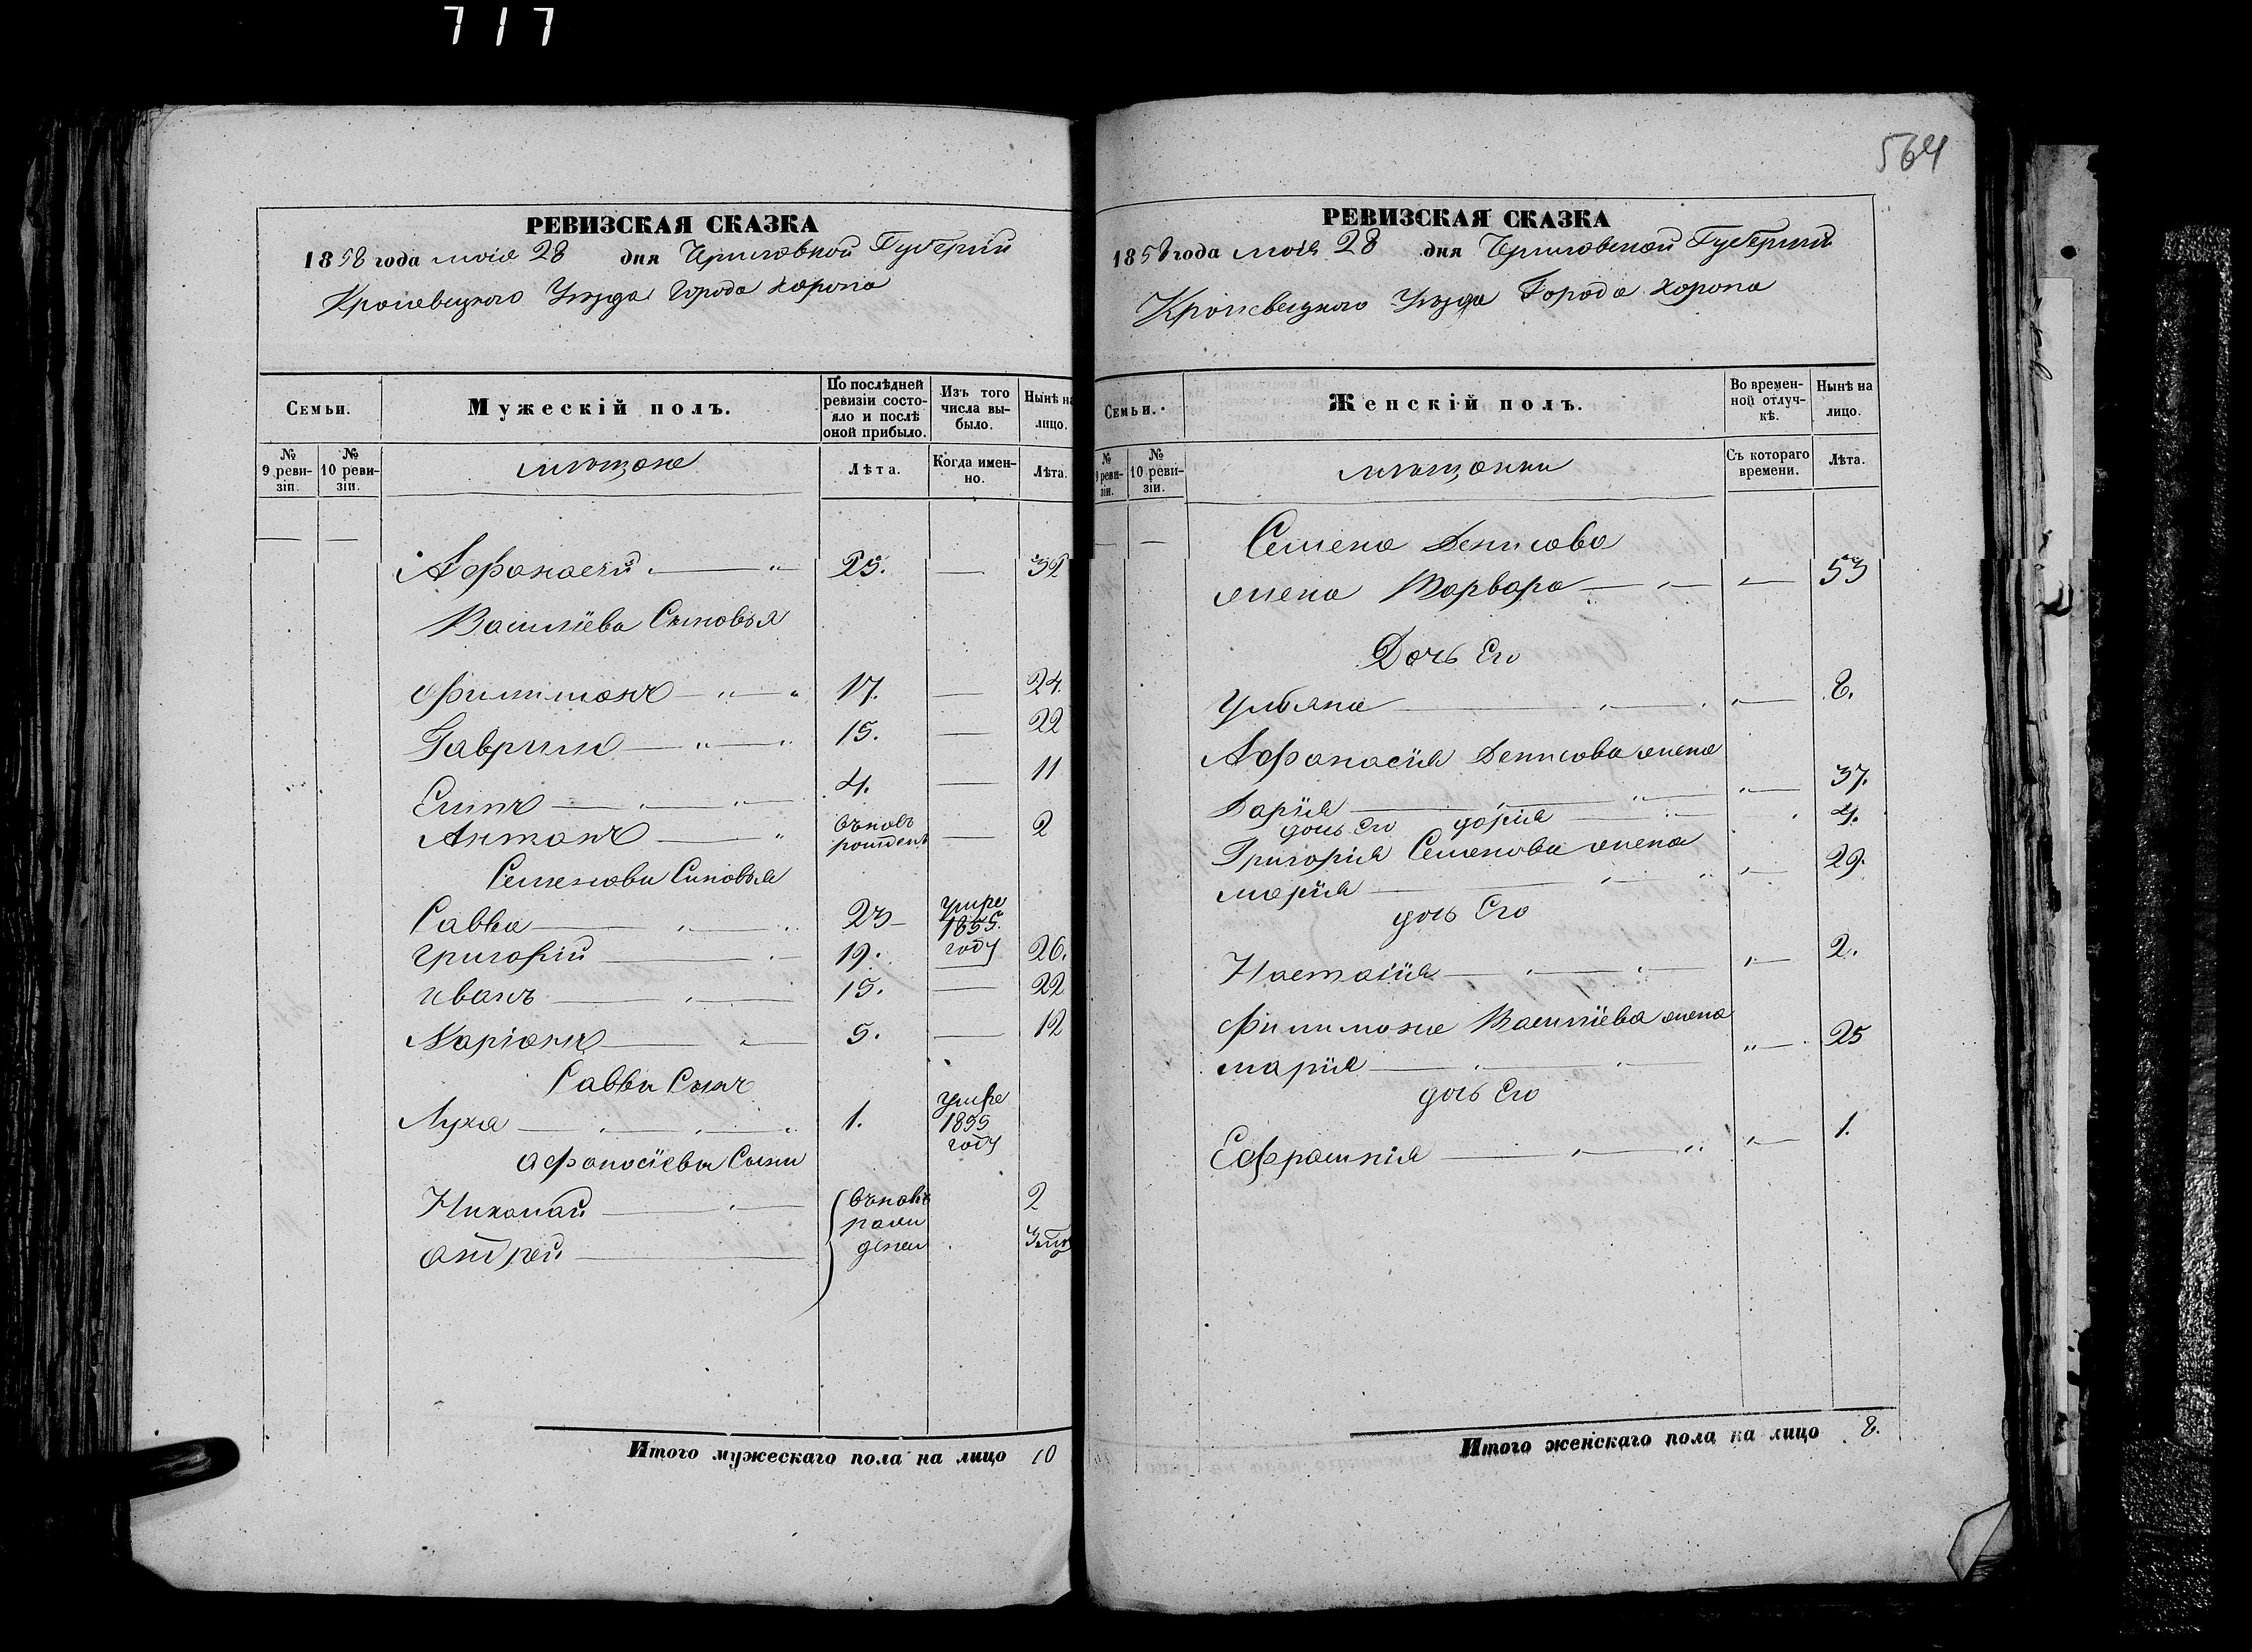 717
РЕВИЗСКАЯ СКАЗКА
1858 года маія 28 дня Черниговской Губерніи
Кролевецкого Уѣзда Города Коропа
Семьи.
Мужескій полъ.
По послѣдней ревизіи состояло и послѣ оной прибыло.
Изъ того числа выбыло.
Нынѣ на лицо.
№ 9 ревизіи.
№ 10 ревизіи.
мѣщане
Лѣта.
Когда именно.
Лѣта.
Афанасій 25. — 32
Василіева Сыновья
Филимонъ 17. — 24.
Гавріилъ 15. — 22
Антонъ вновь рожденъ — 2
Семенова Сыновья
Савва 23 умре 1855. году
Григорій 19. — 26.
Иванъ 15. — 22
Маріанъ 5. — 12
Саввы Сынъ
Лука 1. умре 1855 году
Афанасіева Сыны
Николай вновь 2
Андрей рожденны
Итого мужескаго пола на лицо 10
564
РЕВИЗСКАЯ СКАЗКА
1858 года маія 28 дня Черниговской Губерніи
Кролевецкого Уѣзда Города Коропа
Семьи.
Женскій полъ.
Во временной отлучкѣ.
Нынѣ на лицо.
№ 9 ревизіи.
№ 10 ревизіи.
мѣщанки
Съ котораго времени.
Лѣта.
Семена Денисова
жена Варвара 53
Дочь Его
Ульяна 8.
Афанасія Денисова жена
Дарія 37.
дочь Его Дарія 4.
Григорія Семенова жена
Марія 29.
дочь Его
Настасія 2.
Филимона Василіева жена
Марія 25
дочь Его
Ефросинія 1.
Итого женскаго пола на лицо 8.